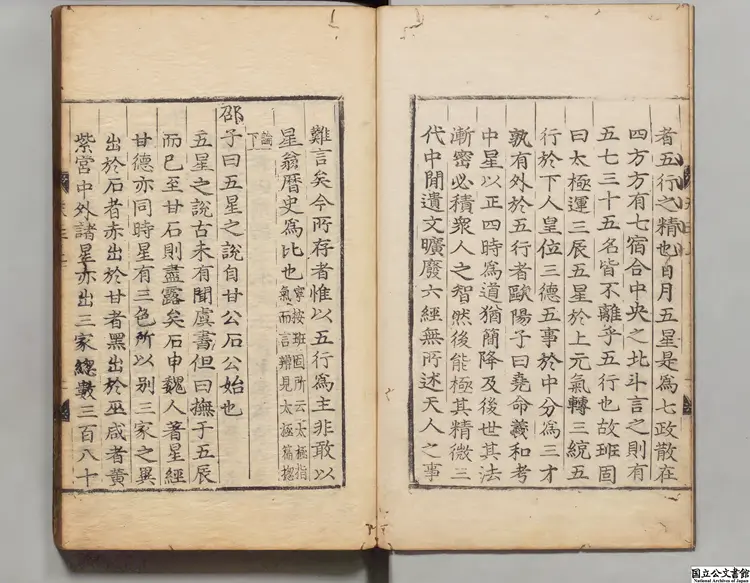 者五行之精也日月五星是爲七政散在
四方方有七宿合中央之北斗言之則有
五七三十五名皆不離乎五行也故班固
曰太極運三辰五星於上元氣轉三統五
行於下人皇位三德五事於中分爲三才
孰有外於五行者歐陽子曰堯命羲和考
中星以正四時爲道猶簡降及後世其法
漸密必積衆人之智然後能極其精微三
代中閒遺文曠廢六經無所述天人之事
難言矣今所存者惟以五行爲主非敢以
星翁曆史爲比也
寧按班固所云太極指
氣而言辨見太極篇摠
論
下
邵子曰五星之說自甘公石公始也
五星之說古未有聞虞書但曰撫于五辰
而已至甘石則盡露矣石申魏人著星經
甘德亦同時星有三色所以別三家之異
出於石者赤出於甘者黑出於巫咸者黃
紫宮中外諸星亦出三家總數三百八十
国立公文書館
National Archives of Japan